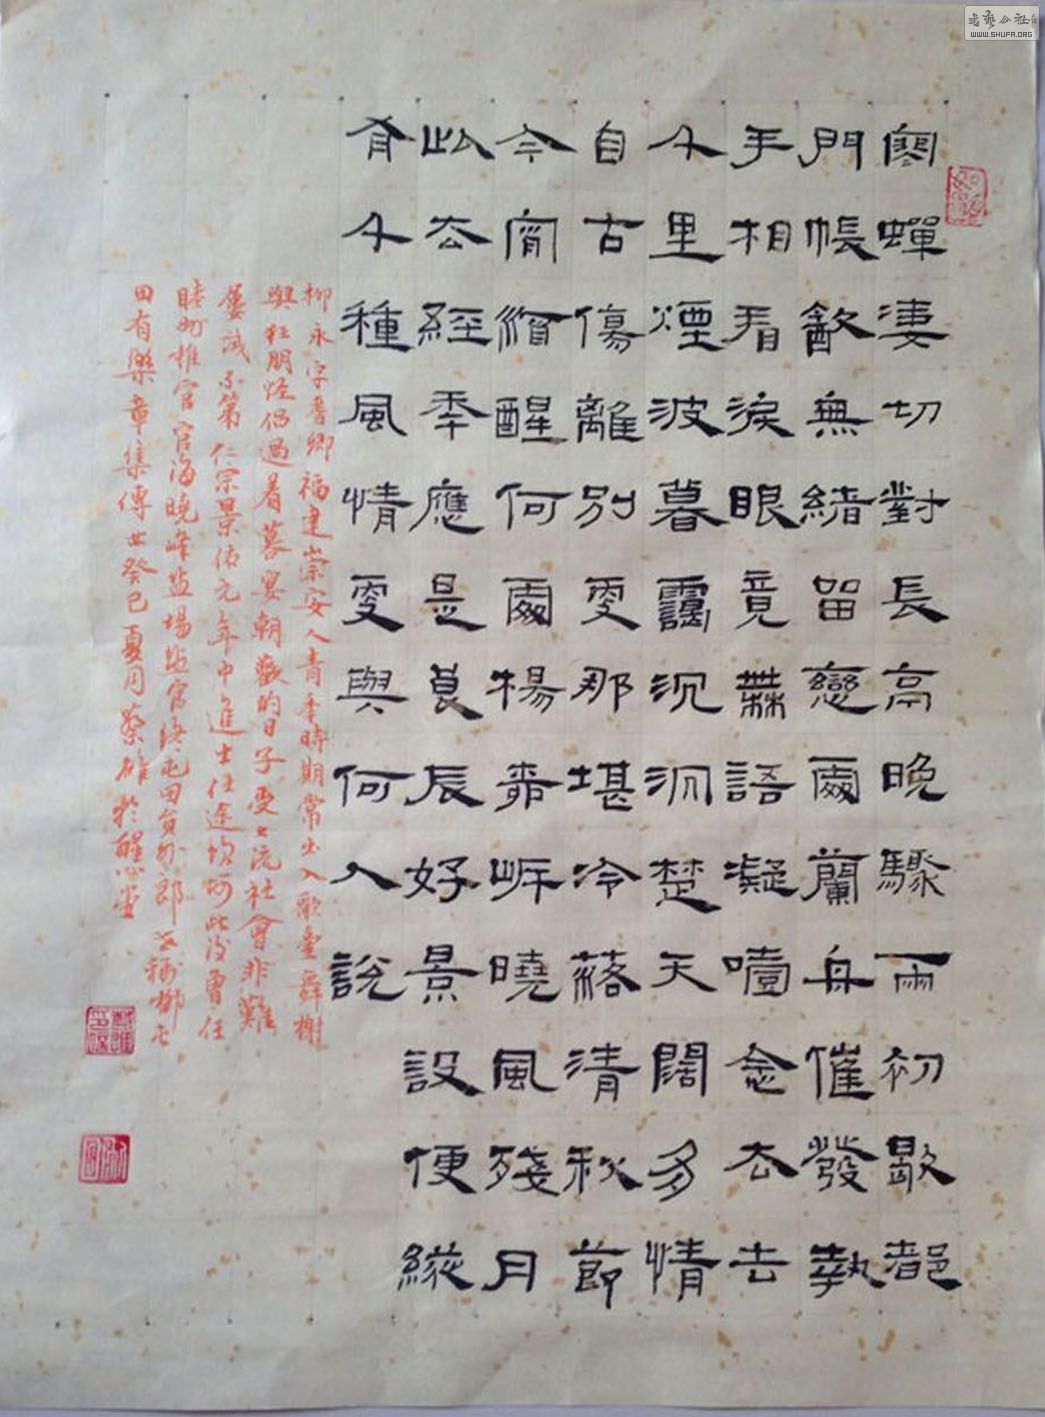 寒蟬淒切對長亭晚驟雨初歇都
門帳飲無緒留戀處蘭舟催發執
手相看淚眼竟無語凝噎念去去
千里煙波暮靄沉沉楚天闊多情
自古傷離別更那堪冷落清秋節
今宵酒醒何處楊柳岸曉風殘月
此去經年應是良辰好景設便縱
有千種風情更與何人說
柳永字耆卿福建崇安人青年時期常出入歌臺舞榭
與狂朋怪侶過着暮宴朝歡的日子受上流社會非難
屢試不第仁宗景佑元年中進士仕途坎坷此後曾任
睦州推官定海曉峰盐場盐官終屯田員外郎世稱柳屯
田有樂章集傳世癸巳夏月蔡於醒心堂
WWW.SHUFA.ORG